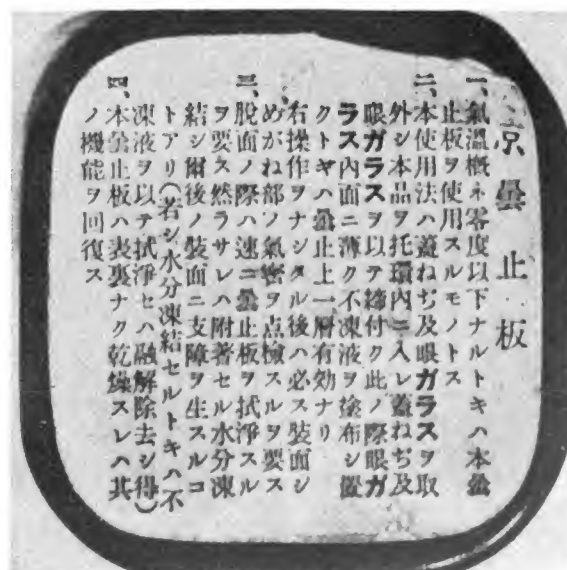 曇止板
一、氣溫概ネ零度以下ナルトキハ本曇
止板ヲ使用スルモノトス
二、本使用法ハ蓋ねぢ及眼ガラスヲ取
外シ本品ヲ托環內ニ入レ蓋ねぢ及
眼ガラスヲ以テ締付ク此ノ際眼ガ
ラス內面ニ薄ク不凍液ヲ塗布シ置
クトキハ曇止上一層有効ナリ
右操作ヲナシタル後ハ必ス裝面シ
めがね部ノ氣密ヲ点檢スルヲ要ス
三、脫面ノ際ハ速ニ曇止板ヲ拭淨スル
ヲ要ス然ラサレハ附著セル水分凍
結シ爾後ノ裝面ニ支障ヲ生スルコ
トアリ(若シ水分凍結セルトキハ不
凍液ヲ以テ拭淨セハ融解除去シ得)
四、本曇止板ハ表裏ナク乾燥スレハ其
ノ機能ヲ回復ス